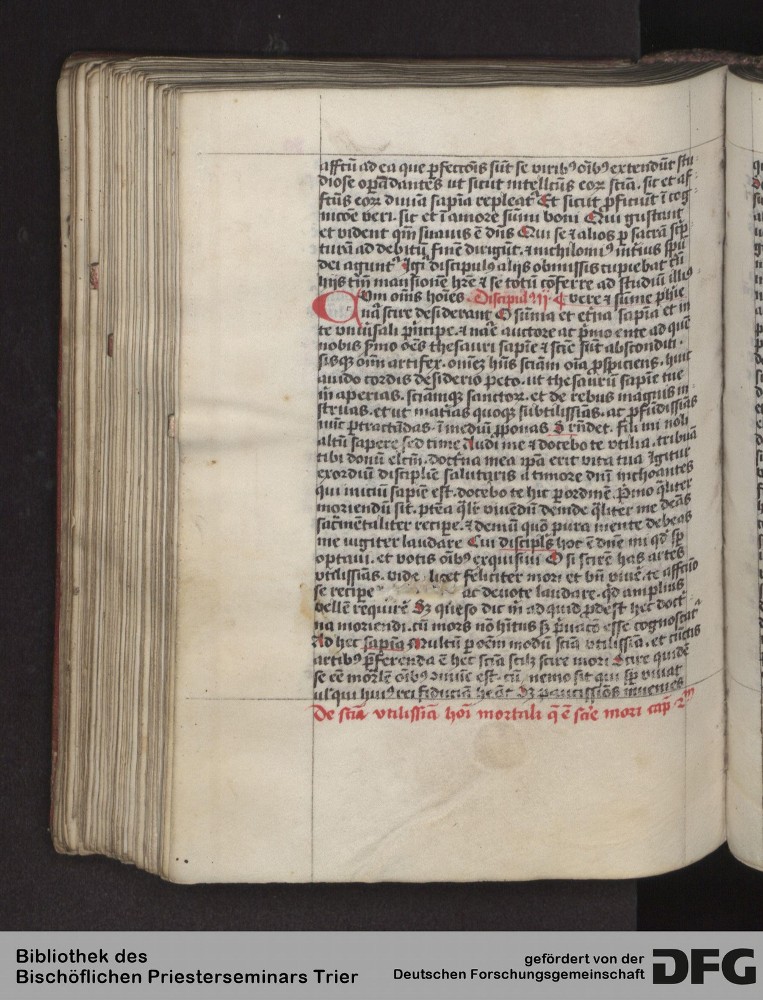 affctū ad ea que ꝑfecc̄ois sūt se viribꝰ oībꝰ extendūt stu
diose oꝑādantes ut sicut intellctūs eoꝝ sciā . sit et af
fctūs eoꝝ diuīa sapīa repleatᷣ Et sicut ꝓficiūt ī cog
nicōe veri . sit et ī amore sūmi boni Qui gustant
et vident qm̄ suauis ē dn̄s Qui se & alios ꝑ sacrā scͥp
turā ad debitū finē dirigūt . & nichilomiꝰ int̄ius spū
dei aguntᷣ Igiᷣ discipulꝰ aliis obmissis cupiebat tm̄
hijs tm̄ mansionē hr̄e & se totū cōferre ad studiū illiꝰ
Cum om̄is hoīes . Discipulꝰ vere & sūme phīe
quā scire desiderant O sūma et et̓na sapīa et in
te vniūsali pͥncipe . & nāe auctore ac pͥmo ente ad quē
nobis sūmo oēs thesauri sapīe & sciē sūt abscondit .
sisqꝫ oīm artifex . omēꝫ hn̄s sciām oīa ꝑspiciens . huit
auido cordis desiderio peto . ut thesaurū sapīe tue
m̄ aperias . sciāmqꝫ sanctoꝝ . et de rebus magnis m̄
struas . et ut mat̄ias quoqꝫ subtilissīas . ac ꝓfūdissīas
nūc ꝑtractādas . ī mediū ꝓponas S rn̄det . fili mi noli
altū sapere sed time Audi me & docebo te vtilia . tribuā
tibi donū elc̄m . doct̓na mea ip̄a erit vita tua Igitur
exordiū discipliē salutaris a timore dn̄i inchoantes
qui iniciū sapiē est . docebo te hic ꝑ ordinē . Pͥmo qͣliter
moriendū sit . ptēa qͣlr̄ viuēdū deinde qͣliter me deās
sacͣmētaliter recipe . & demū quō pura mente debeas
me iugiter laudare Cui discipls̄ hoc ē dn̄e mi qd̓ sꝑ
optaui . et votis oībꝰ exquisiui O si scirē has artes
vtilissīas . vide liꝫet feliciter mori et bn̄ viuē . te affcīio
se recipe ac deuote laudare . qd̓ amplius
vellē requirē Sꝫ queso dic m̄ ad quid ꝓdest hec doct
na moriendi . cū mors nō hītus sꝫ ꝑuacō esse cognoscat᷑
Ad hec sapīa Multū ꝑ oēm modū sciā vtilissīa . et cūctis
artibꝰ p̄ferenda ē hec sciā scilꝫ scire mori Scire quidē
se eē morlē oībꝰ ꝯmūe est . cū nemo sit qui sꝑ viuat
ul̓ qui huiꝰ rei fiduciā heāt Sꝫ paucissīos inuenies
De sciā vtilissīa hoī mortali q̄ ē sciͬe mori cap̄ 2ᵐ
Bibliothek des
Bischöflichen Priesterseminars Trier
gefördert von der
Deutschen Forschungsgemeinschaft
DFG